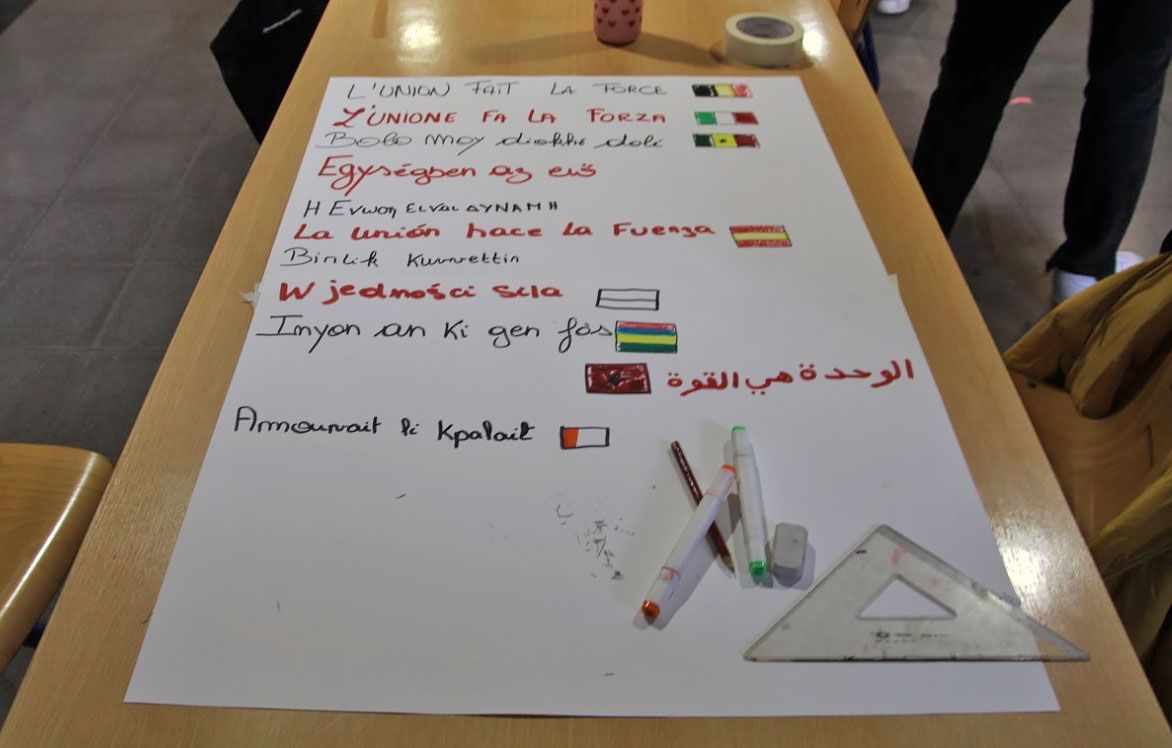 L'UNION FAIT LA FORCE
L'UNIONE FA LA FORZA
Bolo moy diokhé dolé
Egységben az erő
Η Ενωση ΕΙναι ΔΥΝΑΜΗ
La unión hace la Fuerza
Birlik Kuvvettin
W jedności siła
Inyon an ki gen fòs
الوحدة هي القوة
Amounait li Kpalait